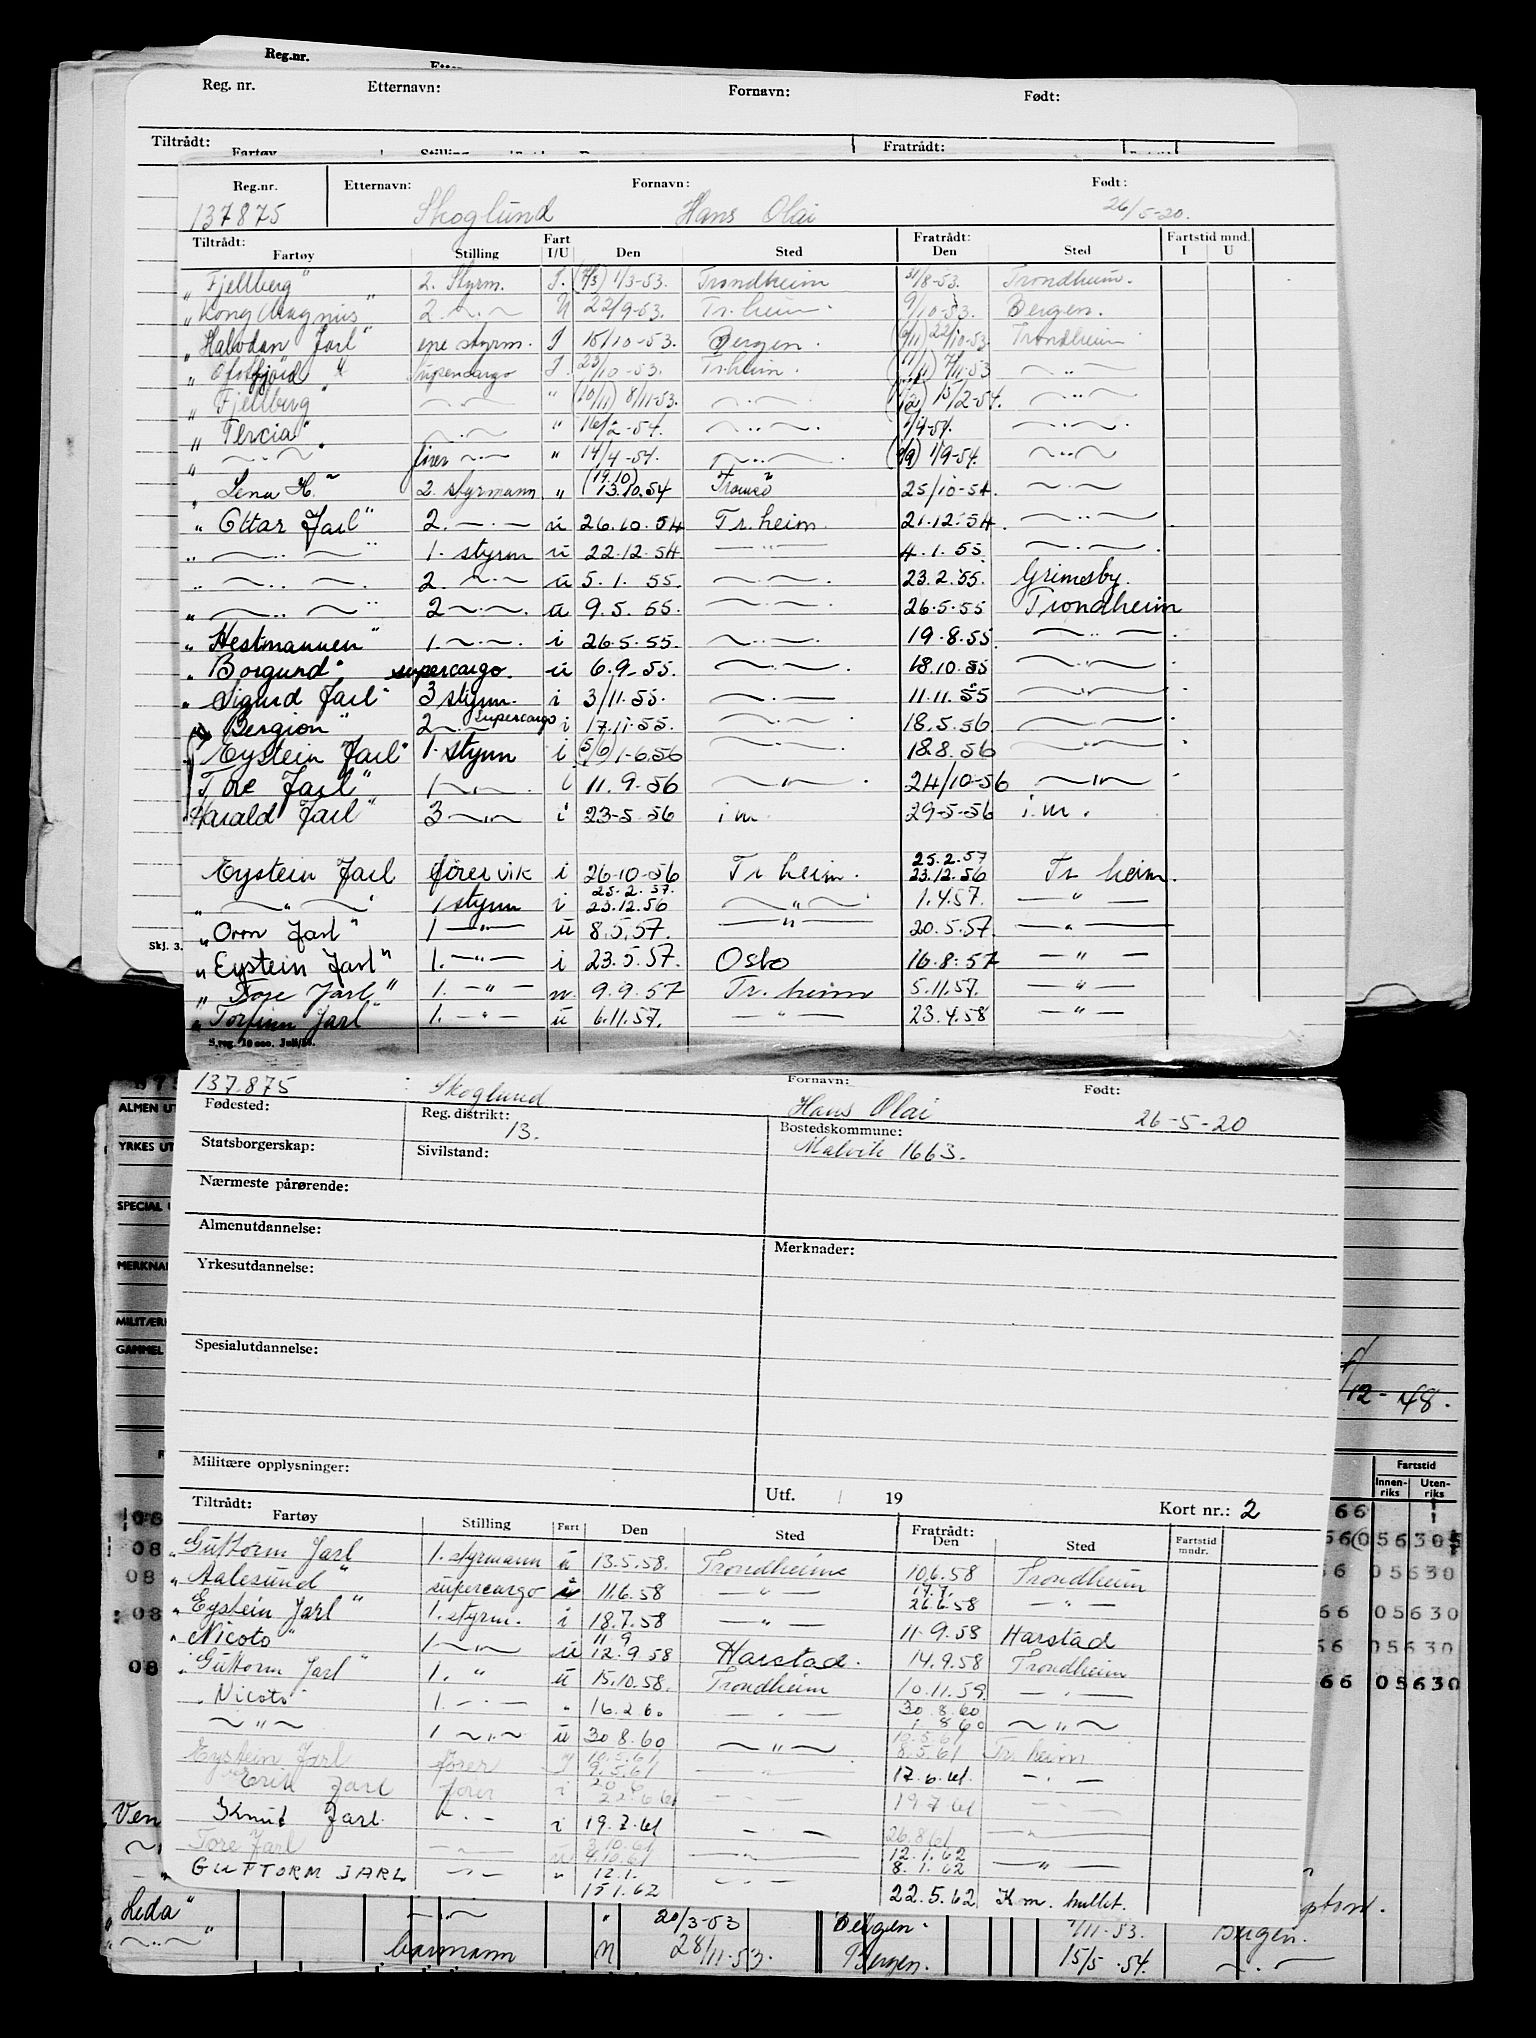 Reg.nr.
Reg. nr. Etternavn: Fornavn: Født:
Tiltrådt: Fratrådt:
Fartøy Stilling
Reg.nr. Etternavn: Fornavn: Født:
137875 Skoglund Hans Olai 26/5-20.
Tiltrådt: Fart Fratrådt: Fartstid mnd.
Fartøy Stilling I/U Den Sted Den Sted I U
"Fjellberg" 2. Styrm. I. (7/3) 1/3-53. Trondheim 31/8-53. Trondheim.
"Kong Magnus" 2. ~.~ U 22/9-53. Tr.heim. 9/10-53. Bergen.
"Halvdan Jarl" ene styrm. I 15/10-53. Bergen. 22/10-53 Trondheim
"Ofotfjord" Supercargo I. 23/10-53. Tr.heim. 7/11-53 ~..~
"Fjellberg" ~.~ " (10/11) 8/11-53. ~..~ 15/2-54. ~..~
"Tercia" ~.~ " 16/2-54. ~..~. /4-54. ~..~.
"~..~" fører ~.~ " 14/4-54. ~..~ 1/9-54. ~..~
"Lena H." 2. styrmann " (19.10) 13.10.54 Tromsø 25/10-54. ~.~
"Ottar Jarl" 2. —.— u 26.10.54 Tr.heim. 21.12.54. ~.~
"~..~" 1. styrm u 22.12.54 —"— 4.1.55. ~.~.
"~..~" 2 ~.~ u 5.1.55. ~.~. 23.2.55. Grimesby.
"~..~" 2 ~.~. u 9.5.55. ~.~ 26.5.55 Trondheim
"Hestmannen" 1. ~.~. i 26.5.55. ~.~. 19.8.55. ~..~.
"Borgund" supercargo. u 6.9.55. ~.~. 18.10.55 ~..~.
"Sigurd Jarl" 3 styrm. i 3/11.55. ~.~ 11.11.55 ~..~
"Bergion" 2 ~.~ supercargo i 17.11.55. ~.~. 18.5.56 ~.~
"Eystein Jarl" 1. styrm i (5/6) 1-6.56 ~..~. 18.8.56 ~"~
"Tore Jarl" 1 ~"~. i 11.9.56 ~"~. 24/10-56 ~"~
"Harald Jarl" 3 ~"~ i 23-5.56 i.m. 29-5-56 i.m.
25.2.57
Eystein Jarl fører vik i 26-10-56 Tr heim. 23.12.56 Tr heim.
25.2.57.
"~"~ 1 styrm i 23.12.56 ~"~ 1.4.57. —"—
"Orm Jarl" 1 —"— u 8.5.57. —"— 20.5.57. —"—
"Eystein Jarl" 1. —"— i 23.5.57. Oslo 16.8.57 —"—
"Tore Jarl" 1. —"— u. 9.9.57 Tr. heim 5.11.57. —"—
"Torfinn Jarl" 1. —"— u 6.11.57. —"— 23.4.58 —"—
Skj. 3.
Fornavn: Født:
137.875 Skoglund Hans Olai 26-5-20
Fødested: Reg.distrikt: Bostedskommune:
13. Malvik 1663.
Statsborgerskap: Sivilstand:
Nærmeste pårørende:
Almenutdannelse: Merknader:
Yrkesutdannelse:
Spesialutdannelse:
Militære opplysninger:
Utf. 19 Kort nr.: 2
Tiltrådt: Fratrådt: Fartstid
Fartøy Stilling Fart Den Sted Den Sted mndr.
"Guttorm Jarl 1. styrmann u 13.5.58. Trondheim 10.6.58 Trondheim
17.7.
"Aalesund" supercargo i 11.6.58 —"— 26.6.58 —"—
"Eystein Jarl" 1. styrm. i 18.7.58 —"— 11.9.58 Harstad
11 9
"Nicoto" 1 ~"~ u 12.9.58 Harstad. 14.9.58 Trondheim
"Guttorm Jarl" 1. " u 15.10.58. Trondheim 10.11.59. —.—
30.8.60
"Nicoto" 1. —.— " 16.2.60 —.— 1 8 60 ~"~
10.5.61
~"~ 1 ~.~ u 30.8.60 ~"~ 8.5.61 Tr heim
10.5.61
Eystein Jarl fører I 9.5.61 —"— 17.6.61. —.—
Erik Jarl fører i 22.6 61 —.— 19.7.61 —.—
Knut Jarl. —.— i 19.7.61 —.— 26.8.61 —"—
3.10.61 12.1.62
Tore Jarl —"— u 4.10.61 —"— 8.1.62 —"—
12.1.
GUTTORM JARL —.— " 15 1.62 —.— 22.5.62 K m. hullet.
ALMEN UT
YRKES UT
SPECIAL
MERKNA
MILITÆR
GAMMEL
/12-48.
Fartstid
Innen-riks Uten-riks
06 66
08 56 05630
08 6 05630
08 66 05630
66 05630
08 66 05630
Ven
"Leda" —.— " 20/3-53 Bergen. /11-53. Bergen.
"~..~" barmann U 28/11-53. Bergen. 15/5-54. ~.~